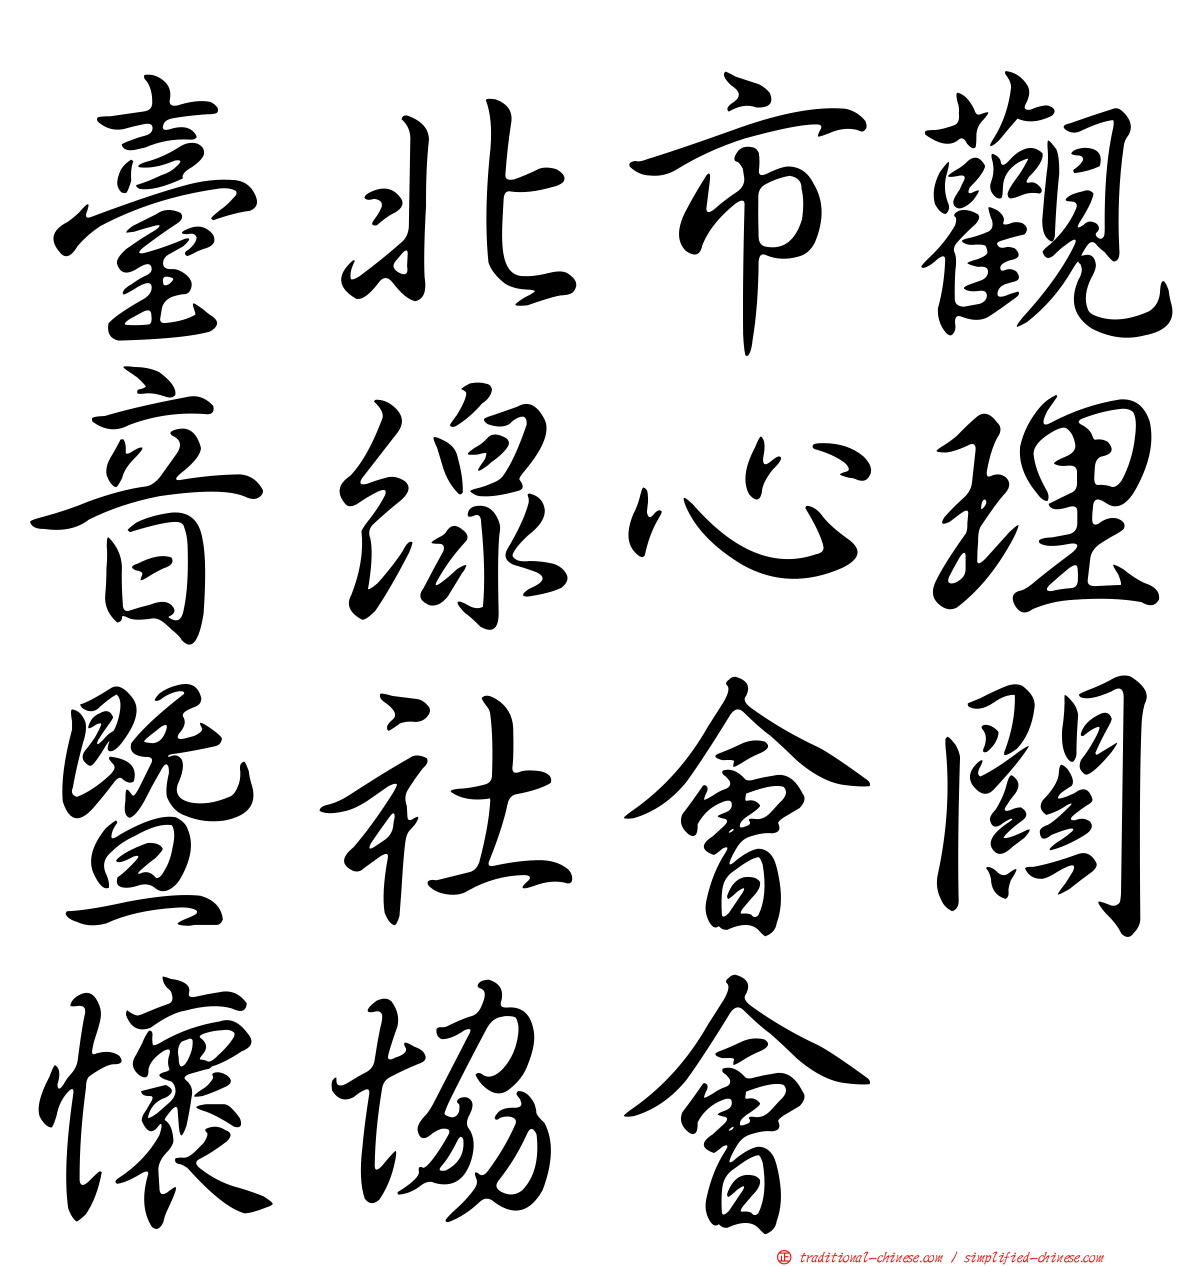 臺北市觀
音線心理
暨社會關
懷協會
正 traditional-chinese.com / simplified-chinese.com